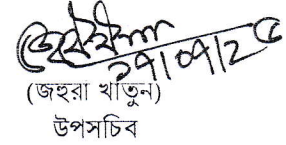 ২৭/০৭/২৫
(জহুরা খাতুন)
উপসচিব